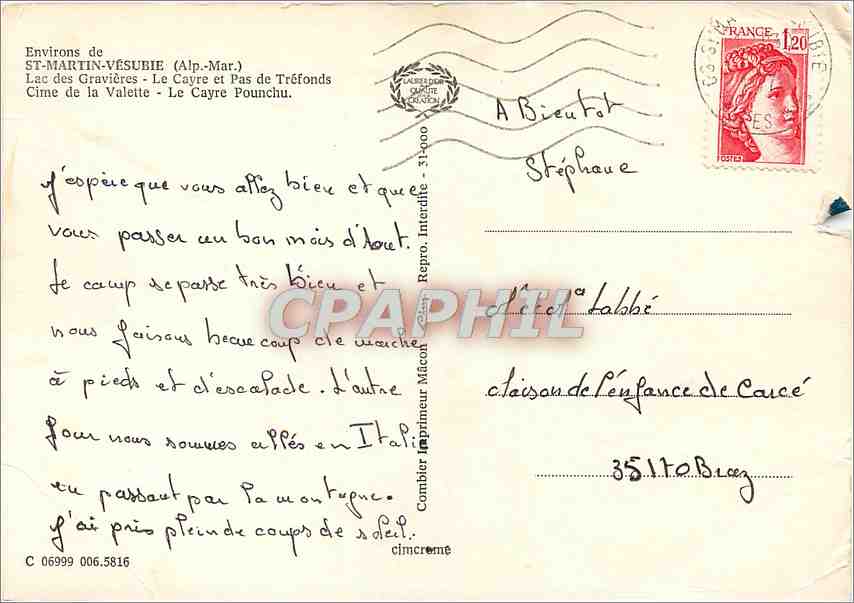 Environs de
ST-MARTIN-VÉSUBIE (Alp.-Mar.)
Lac des Gravières - Le Cayre et Pas de Tréfonds
Cime de la Valette - Le Cayre Pounchu.
J'espère que vous allez bien et que
vous passer un bon mois d'Aout.
Le camp se passe très bien et
nous faisons beaucoup de marche
à pieds et d'escalade. L'autre
jour nous sommes allés en Italie
en passant par la montagne.
J'ai pris plein de coups de soleil.
C 06999 006.5816
cimcrome
Combier Imprimeur Mâcon Repro. Interdite - 31-000
LAURIER D'OR
QUALITÉ
CRÉATION
FRANCE 1,20
POSTES
A Bientot
Stéphane
Labbé
Maison de l'énfance de Carcé
35170 Bruz
CPAPHIL